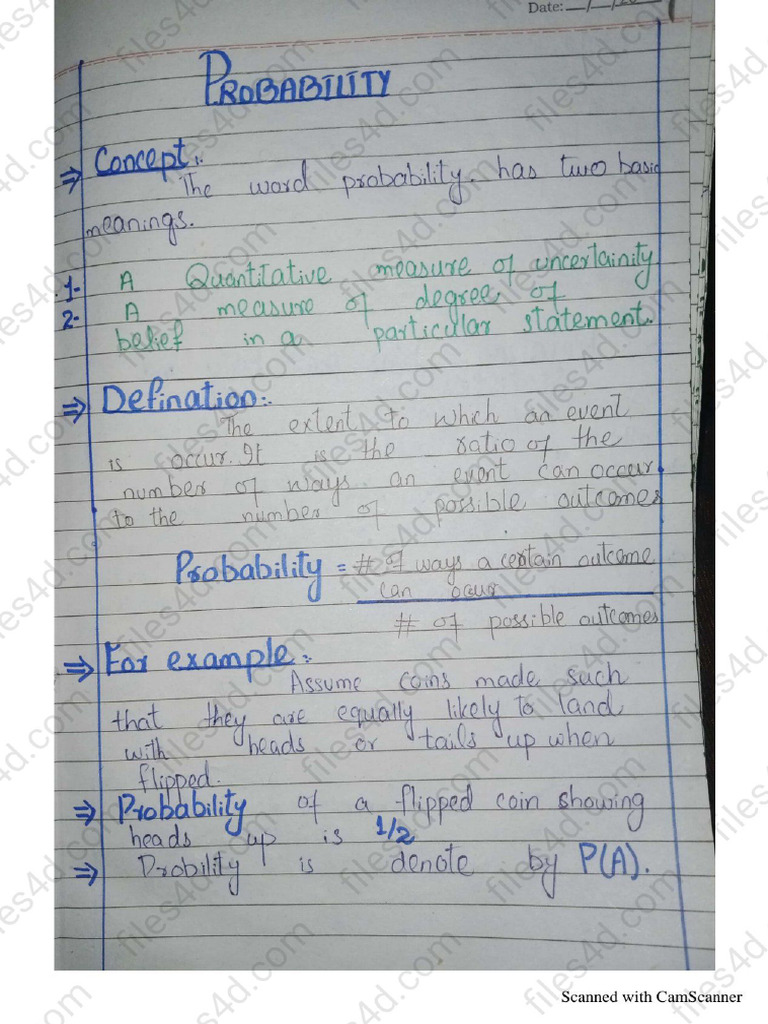 Date: __/__/20__
PROBABILITY
⇒ Concept:.
The word probability has two basic
meanings.
1- A Quantitative measure of uncertainity
2- A measure of degree of
belief in a particular statement.
⇒ Defination:.
The extent to which an event
is occur. It is the ratio of the
number of ways an event can occur
to the number of possible outcomes
Probability = # of ways a certain outcome
can occur
# of possible outcomes
⇒ For example:.
Assume coins made such
that they are equally likely to land
with heads or tails up when
flipped.
⇒ Probability of a flipped coin showing
heads up is 1/2
⇒ Probility is denote by P(A).
Scanned with CamScanner
files4d.com